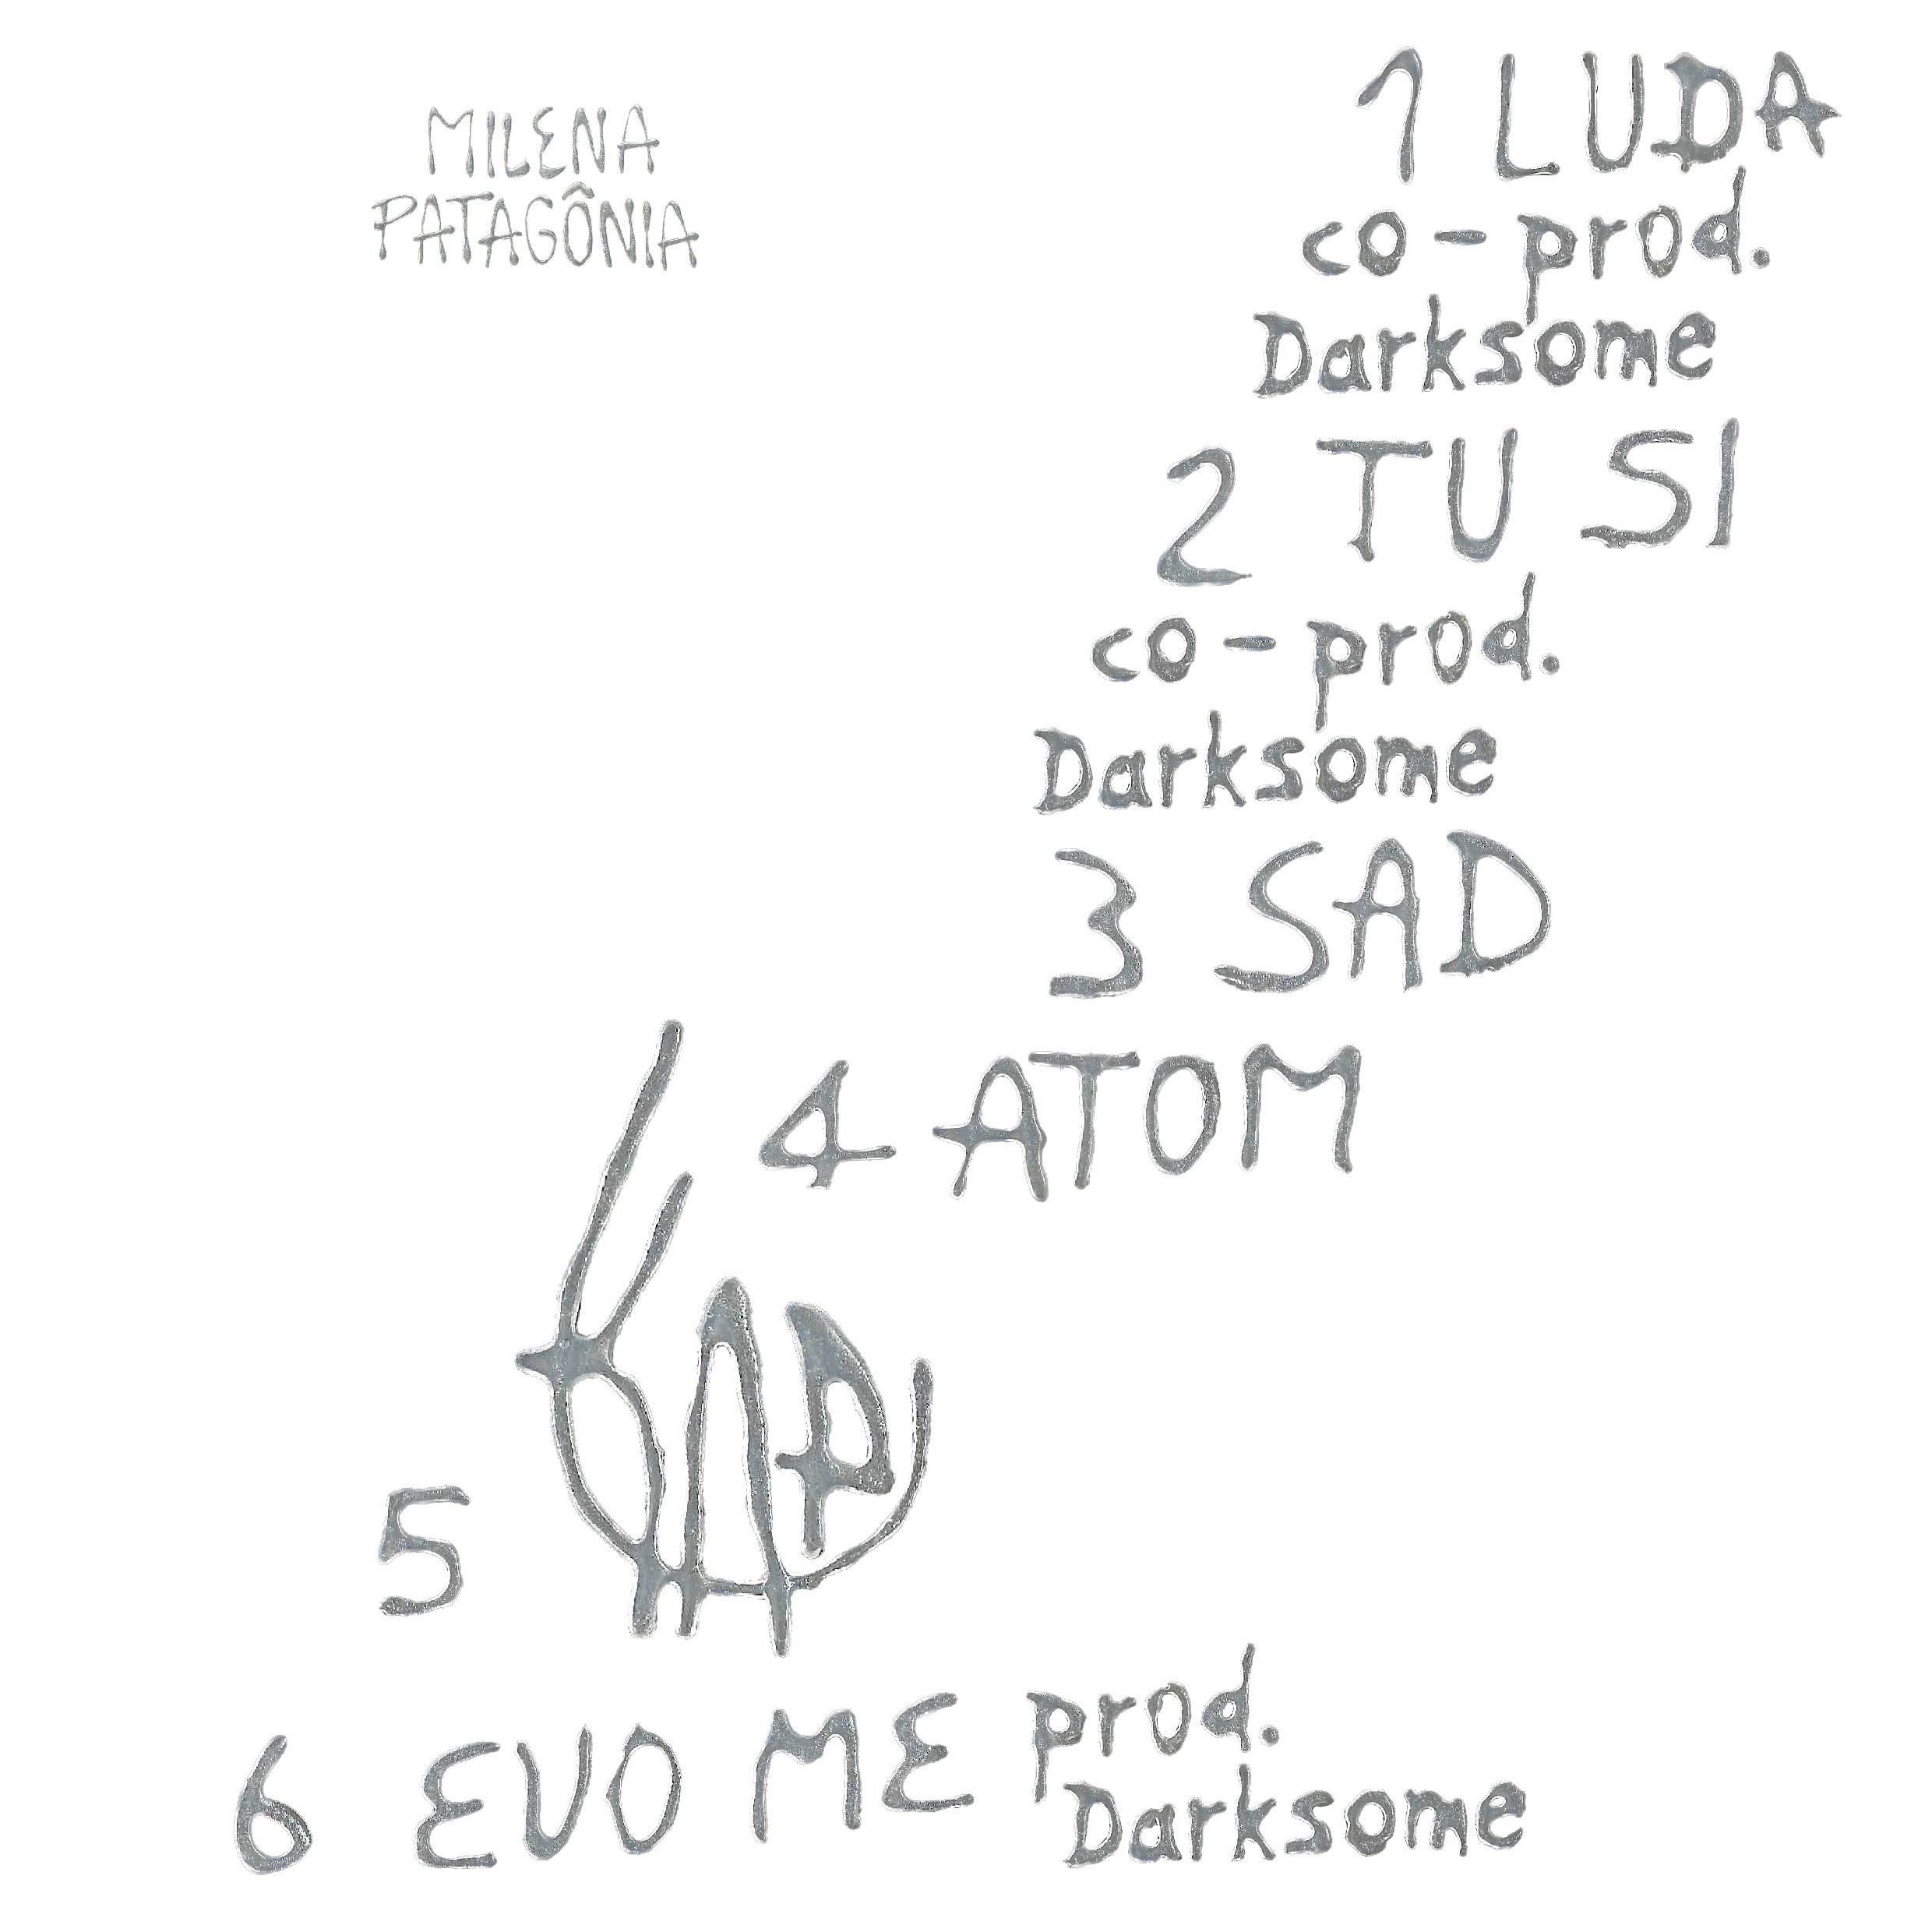 MILENA
PATAGÔNIA
1 LUDA
co-prod.
Darksome
2 TU SI
co-prod.
Darksome
3 SAD
4 ATOM
5
6 EVO ME prod.
Darksome